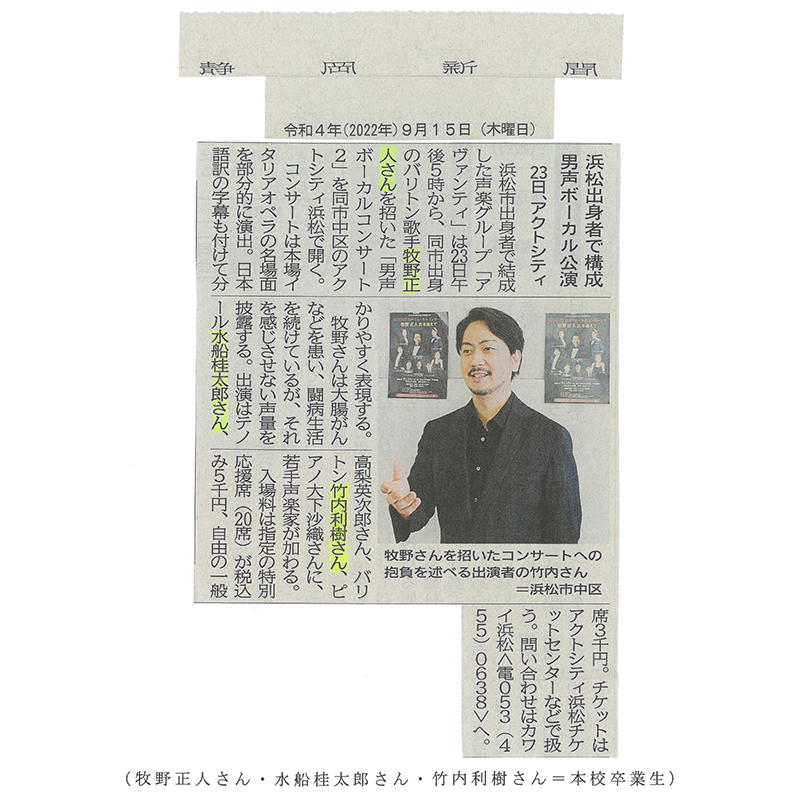 静岡新聞
令和4年(2022年)9月15日(木曜日)
浜松出身者で構成
男声ボーカル公演
23日、アクトシティ
浜松市出身者で結成
した声楽グループ「ア
ヴァンティ」は23日午
後5時から、同市出身
のバリトン歌手牧野正
人さんを招いた「男声
ボーカルコンサート
2」を同市中区のアク
トシティ浜松で開く。
コンサートは本場イ
タリアオペラの名場面
を部分的に演出。日本
語訳の字幕も付けて分
かりやすく表現する。
牧野さんは大腸がん
などを患い、闘病生活
を続けているが、それ
を感じさせない声量を
披露する。出演はテノ
ール水船桂太郎さん、
高梨英次郎さん、バリ
トン竹内利樹さん、ピ
アノ大下沙織さんに、
若手声楽家が加わる。
入場料は指定の特別
応援席(20席)が税込
み5千円、自由の一般
席3千円。チケットは
アクトシティ浜松チケ
ットセンターなどで扱
う。問い合わせはカワ
イ浜松<電053(4
55)0638>へ。
牧野さんを招いたコンサートへの
抱負を述べる出演者の竹内さん
=浜松市中区
(牧野正人さん・水船桂太郎さん・竹内利樹さん=本校卒業生)